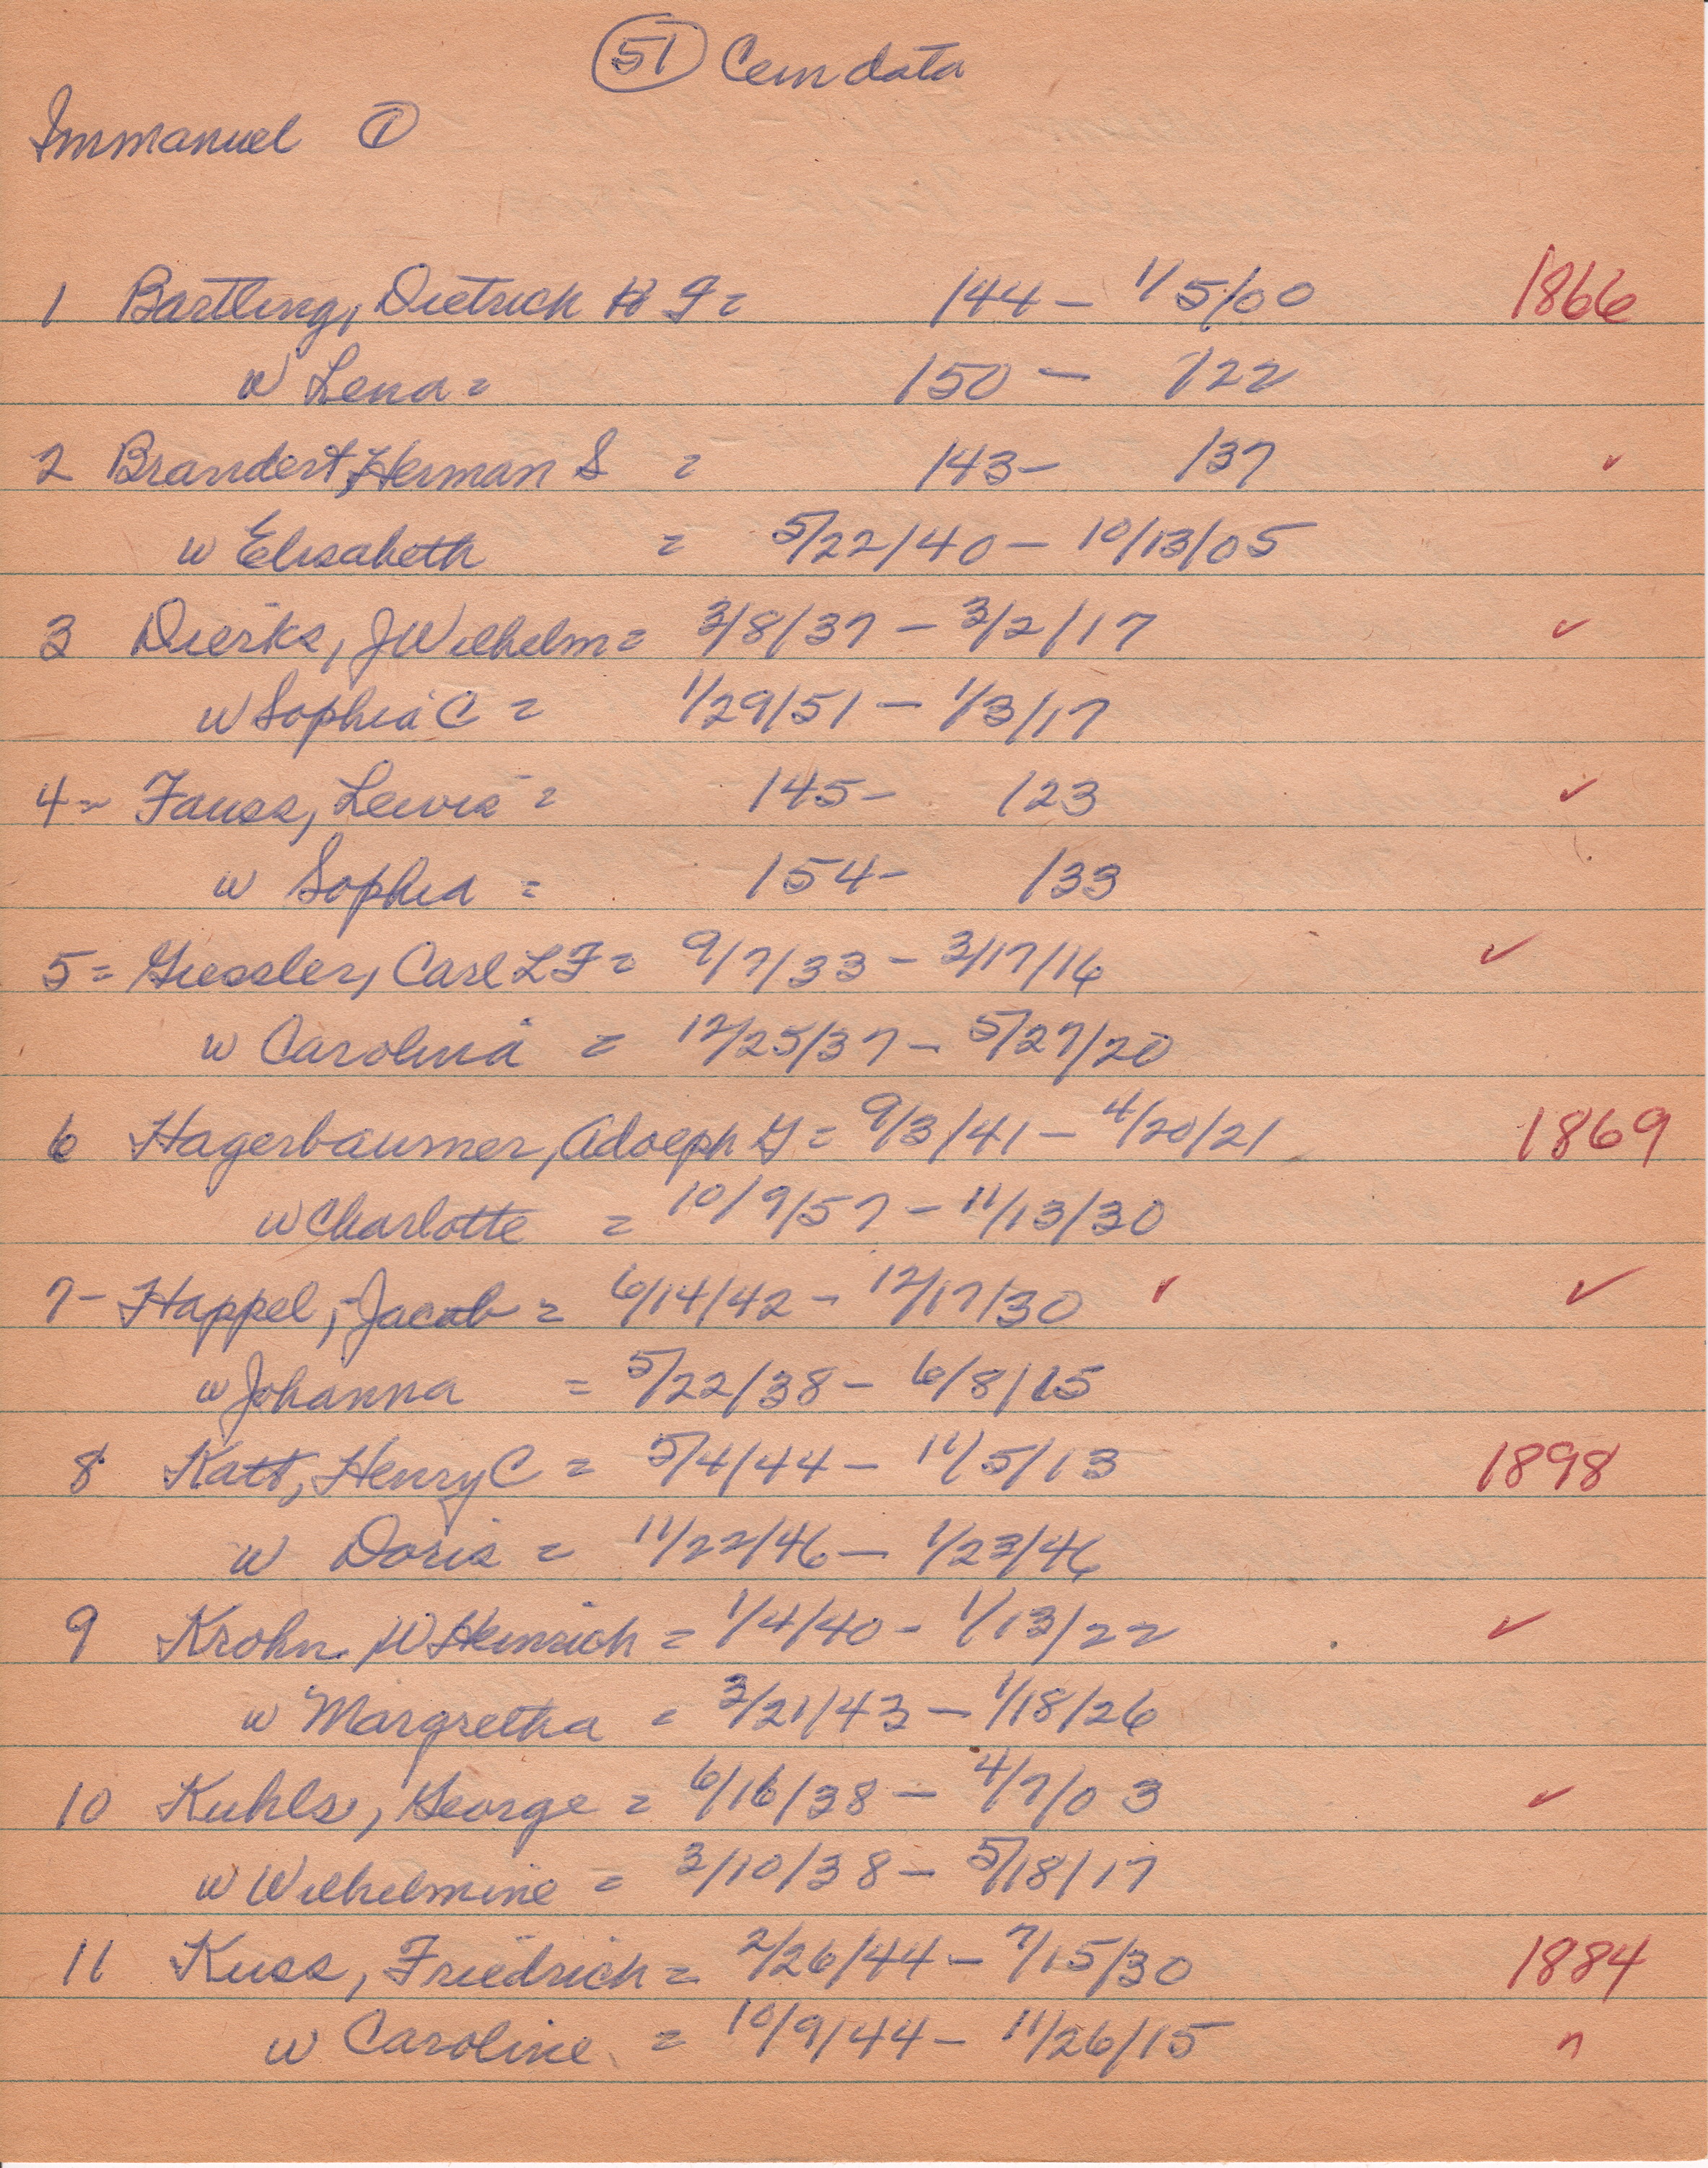 51 Cem data
Immanuel 1
1 Bartling, Dietrich H F = 144 – 1/5/00 1866
w Lena = 150 – /22
2 Brandert, Herman S = 143 – /37 ✓
w Elisabeth = 5/22/40 – 10/13/05
3 Dierks, J Wilhelm = 3/8/37 – 3/2/17 ✓
w Sophia C = 1/29/51 – 1/3/17
4 = Fauss, Lewis = 145 – /23 ✓
w Sophia = 154 – /33
5 = Giessler, Carl L F = 9/7/33 – 3/17/16 ✓
w Carolina = 12/25/37 – 5/27/20
6 Hagerbaumer, Adolph G = 9/3/41 – 4/20/21 1869
w Charlotte = 10/9/57 – 11/13/30
7 – Happel, Jacob = 6/14/42 – 12/17/30 ✓ ✓
w Johanna = 5/22/38 – 6/8/15
8 Katt, Henry C = 5/4/44 – 11/5/13 1898
w Doris = 11/22/46 – 1/23/46
9 Krohn, W Heinrich = 1/4/40 – 1/13/22 ✓
w Margretha = 3/21/43 – 1/18/26
10 Kuhls, George = 6/16/38 – 4/7/03 ✓
w Wilhelmine = 3/10/38 – 5/18/17
11 Kuss, Friedrich = 2/26/44 – 7/15/30 1884
w Caroline = 10/9/44 – 11/26/15